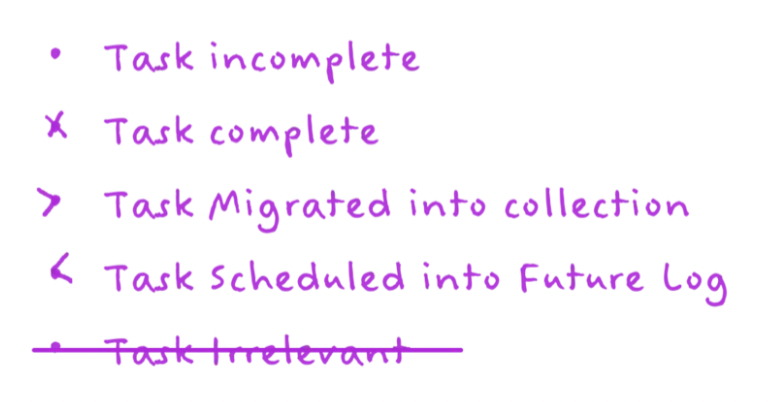 • Task incomplete
x Task complete
> Task Migrated into collection
< Task Scheduled into Future Log
• Task Irrelevant